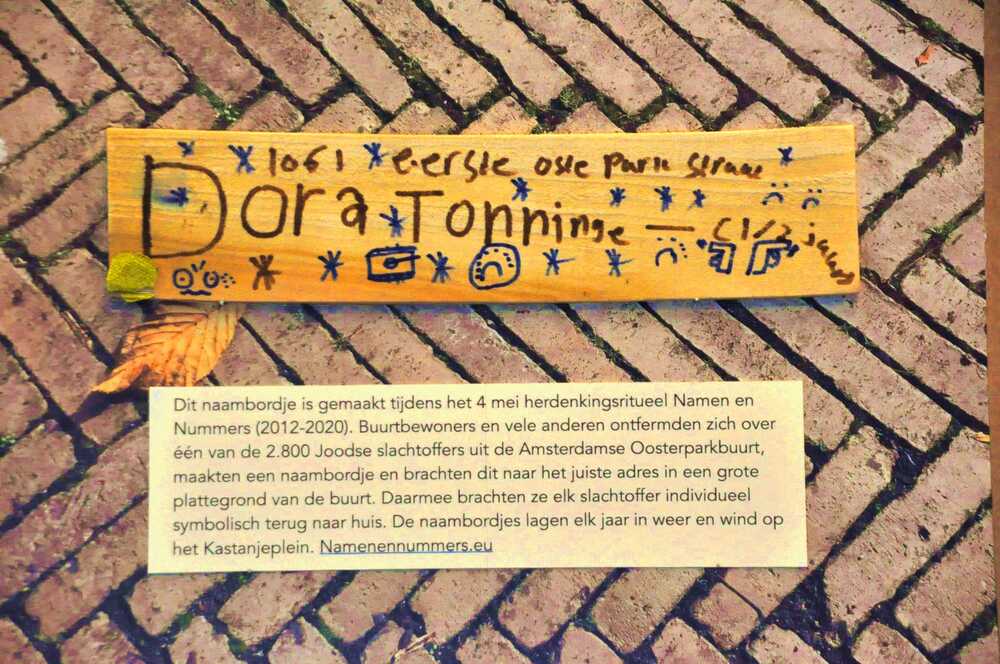 1061 eerste oste park straat
Dora Tonninge — (1/2 jaar)
Dit naambordje is gemaakt tijdens het 4 mei herdenkingsritueel Namen en
Nummers (2012-2020). Buurtbewoners en vele anderen ontfermden zich over
één van de 2.800 Joodse slachtoffers uit de Amsterdamse Oosterparkbuurt,
maakten een naambordje en brachten dit naar het juiste adres in een grote
plattegrond van de buurt. Daarmee brachten ze elk slachtoffer individueel
symbolisch terug naar huis. De naambordjes lagen elk jaar in weer en wind op
het Kastanjeplein. Namenennummers.eu